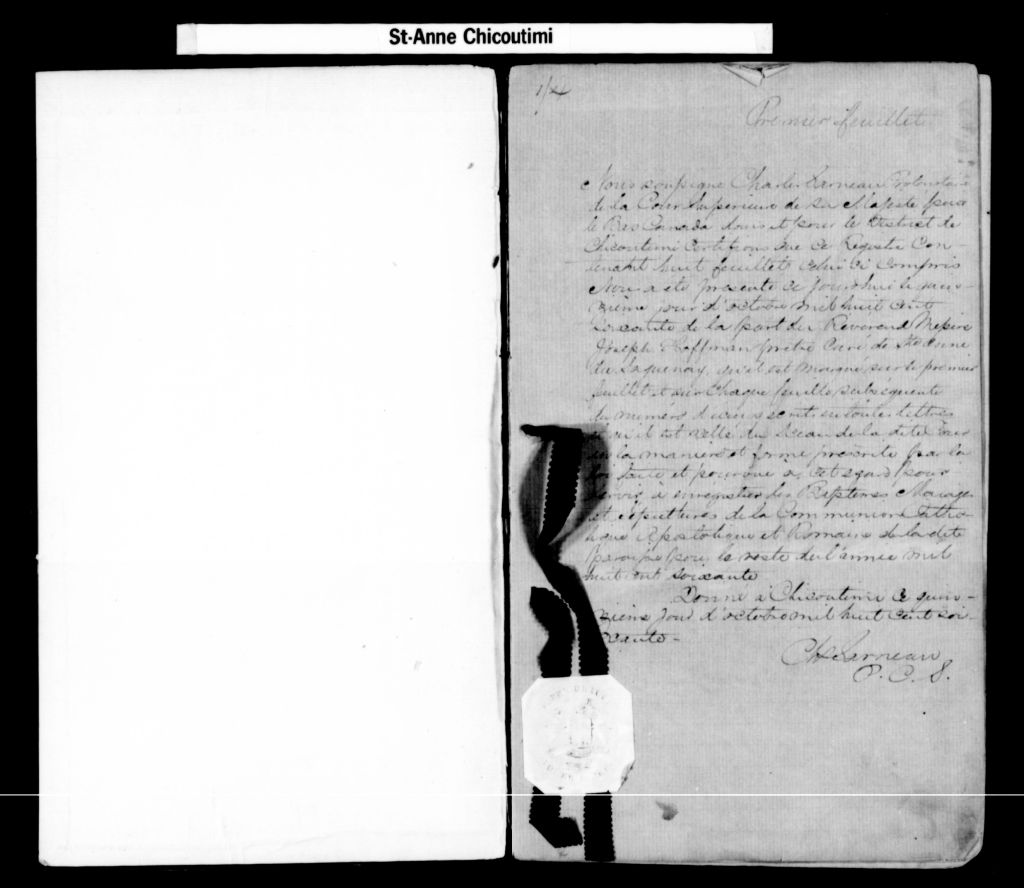 St-Anne Chicoutimi
Premier feuillet
Nous soussigné Charles Larneau Protonotaire
de la Cour Superieure de Sa Majesté pour
le Bas Canada dans et pour le District de
Chicoutimi Certifions que ce Registre Con-
tenant huit feuillets celui ci Compris
Nous a été présenté ce jourdhui le quin-
zieme jour d'octobre mil huit cent
soixante de la part du Révérend Messire
Joseph Hoffman prêtre Curé de Ste Anne
du Saguenay, qu'il est Marqué sur le premier
feuillet et sur Chaque feuillet subséquente
du numéro écrit en toute lettres
et qu'il est scellé du Sceau de la dite Cour
en la maniere et forme prescrite par la
loi faite et pourvue a cet egard pour
servir à enregistrer les Baptemes Mariages
et Sépultures de la Communion Catho-
lique Apostolique et Romaine de la dite
paroisse pour le reste de l'année mil
huit cent soixante
Donné à Chicoutimi ce quin-
zieme jour d'octobre mil huit cent soi-
xante -
Larneau
P. C. S.